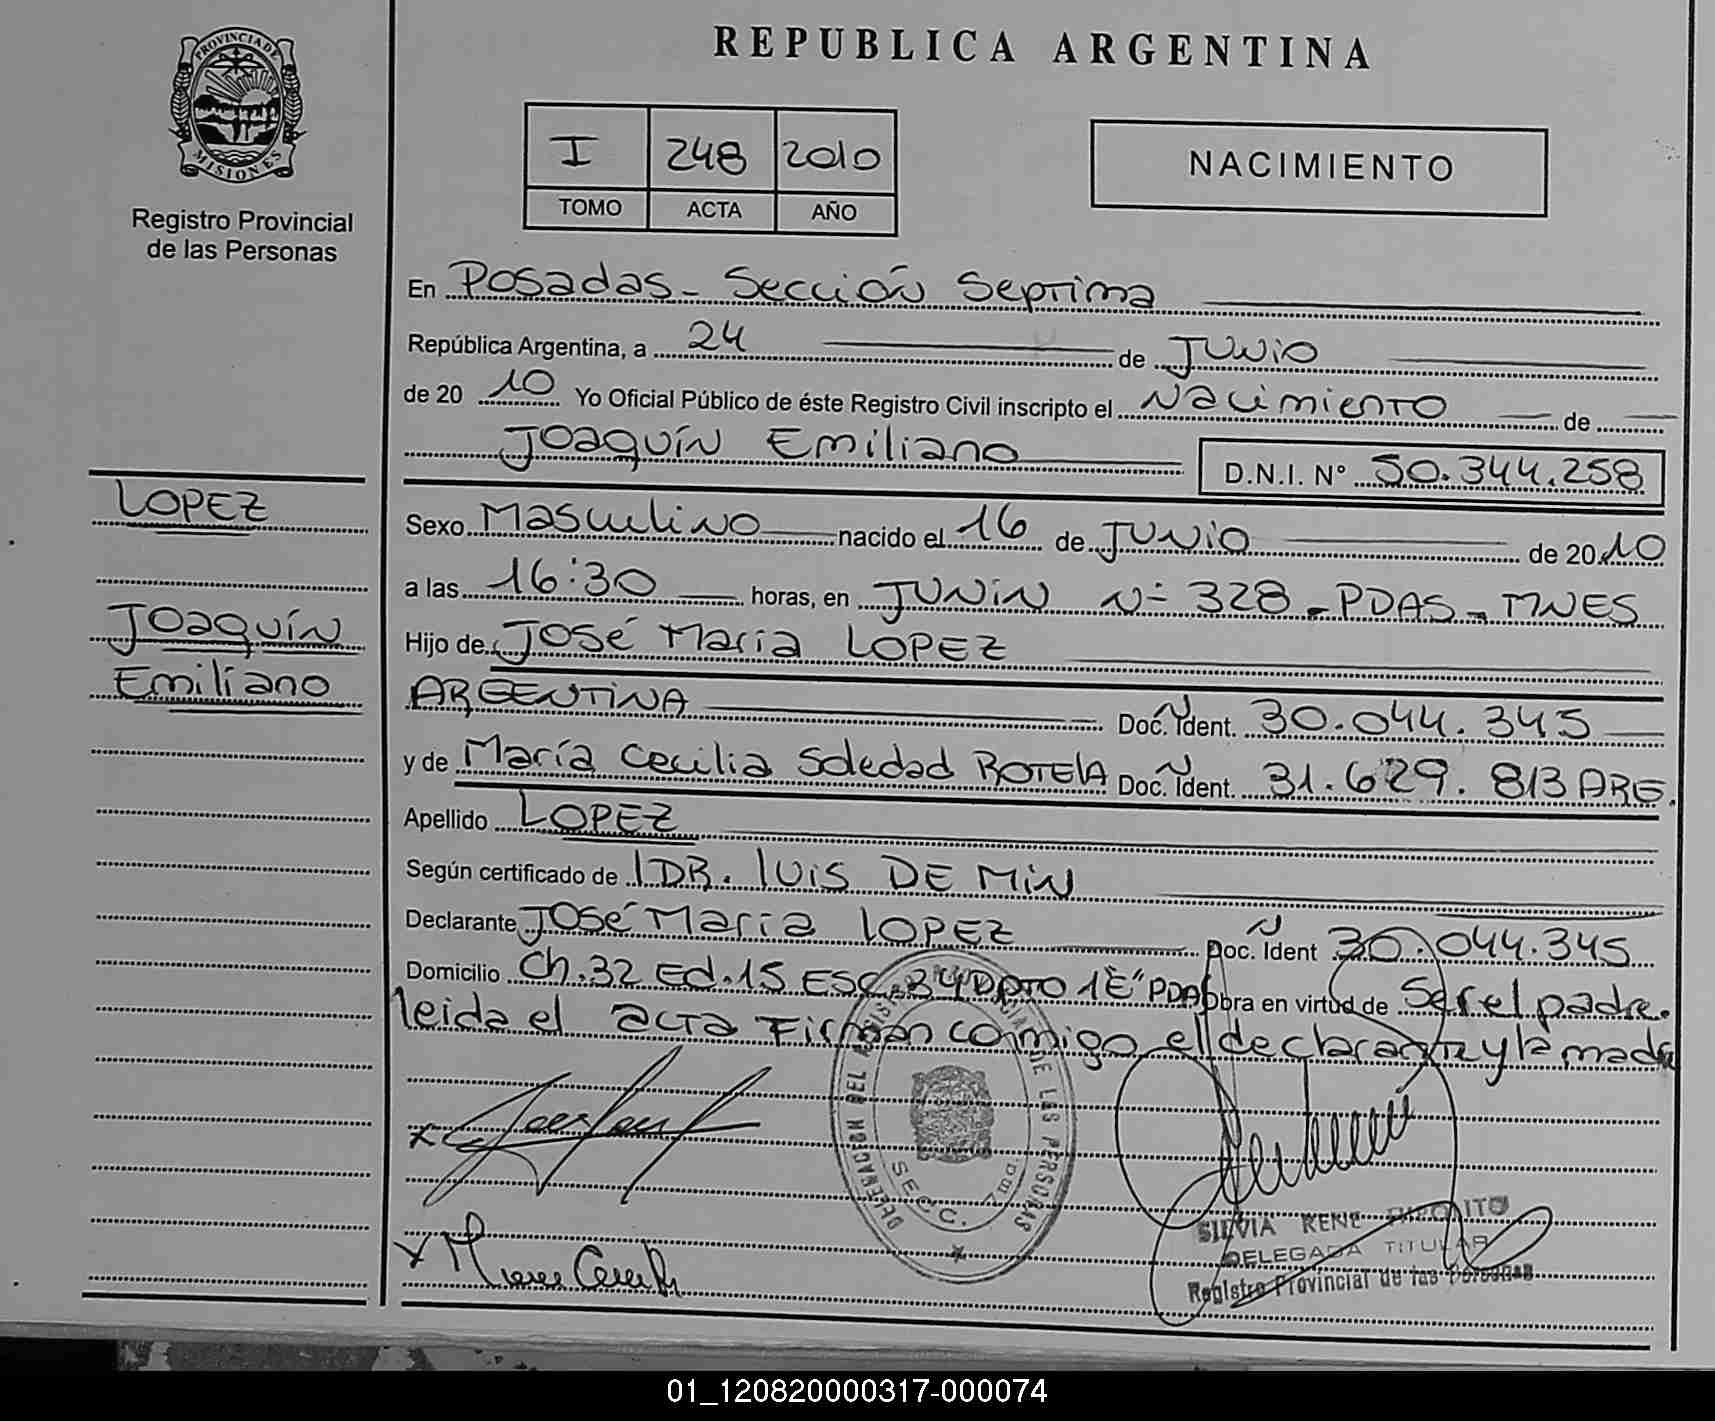 PROVINCIA DE
MISIONES
Registro Provincial
de las Personas
LOPEZ
Joaquín
Emiliano
REPUBLICA ARGENTINA
I 248 2010
TOMO ACTA AÑO
NACIMIENTO
En Posadas - Sección Septima
República Argentina, a 24 de Junio
de 20 10 Yo Oficial Público de éste Registro Civil inscripto el Nacimiento de
Joaquín Emiliano D.N.I. Nº 50.344.258
Sexo Masculino nacido el 16 de Junio de 20 10
a las 16:30 horas, en Junin Nº 328 - PDAS - MNES
Hijo de José Maria LOPEZ
ARGENTINA Doc. Ident. Nº 30.044.345
y de María Cecilia Soledad BOTELA Doc. Ident. Nº 31.629.813 ARG.
Apellido LOPEZ
Según certificado de DR. LUIS DE MIN
Declarante José Maria LOPEZ Doc. Ident Nº 30.044.345
Domicilio Ch. 32 Ed. 15 ESC. 34 DPTO 1"E" PDAS obra en virtud de Ser el padre.
leida el acta Firman conmigo el declarante y la madre
DEL REGISTRO PROVINCIAL DE LAS PERSONAS
SECC. 7ma.
SILVIA RENE
DELEGADA TITULAR
Registro Provincial de las Personas
01_120820000317-000074